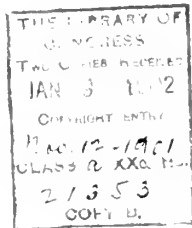 THE LIBRARY OF
CONGRESS
TWO COPIES RECEIVED
JAN 3 1902
COPYRIGHT ENTRY
Nov. 12-1901
CLASS a XXc. No.
21353
COPY B.